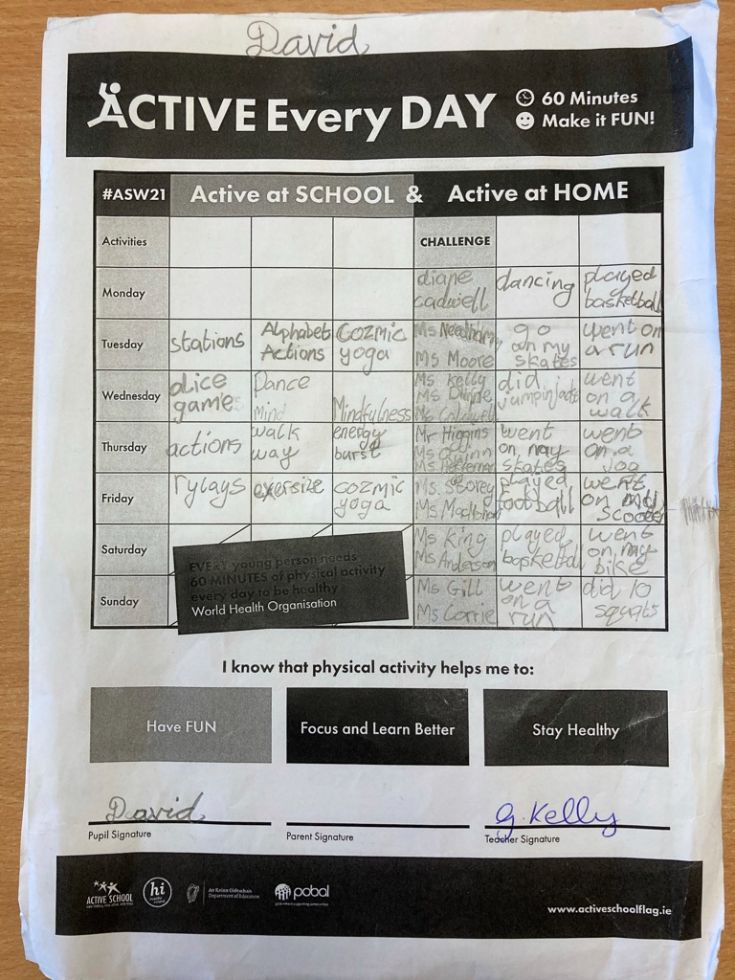 David
ACTIVE Every DAY
60 Minutes
Make it FUN!
#ASW21 Active at SCHOOL & Active at HOME
Activities CHALLENGE
Monday diane cadwell dancing played basketball
Tuesday stations Alphabet Actions Cozmic yoga Ms Moore go on my skates went on a run
Wednesday dice game Dance Mind Mindfulness Ms Kelly Ms did jumpinjacks went on a walk
Thursday actions walk way energy burst Mr Higgins Ms Quinn Ms went on my skates went on a jog
Friday rylays exersize cozmic yoga Ms. Storey Ms played football went on my scooter
Saturday Ms King Ms Anderson played basketball went on my bike
Sunday Ms Gill Ms Corrie went on a run did 10 squats
EVERY young person needs
60 MINUTES of physical activity
every day to be healthy
World Health Organisation
I know that physical activity helps me to:
Have FUN
Focus and Learn Better
Stay Healthy
David
g. Kelly
Pupil Signature
Parent Signature
Teacher Signature
ACTIVE SCHOOL
hi
An Roinn Oideachais
Department of Education
pobal
www.activeschoolflag.ie